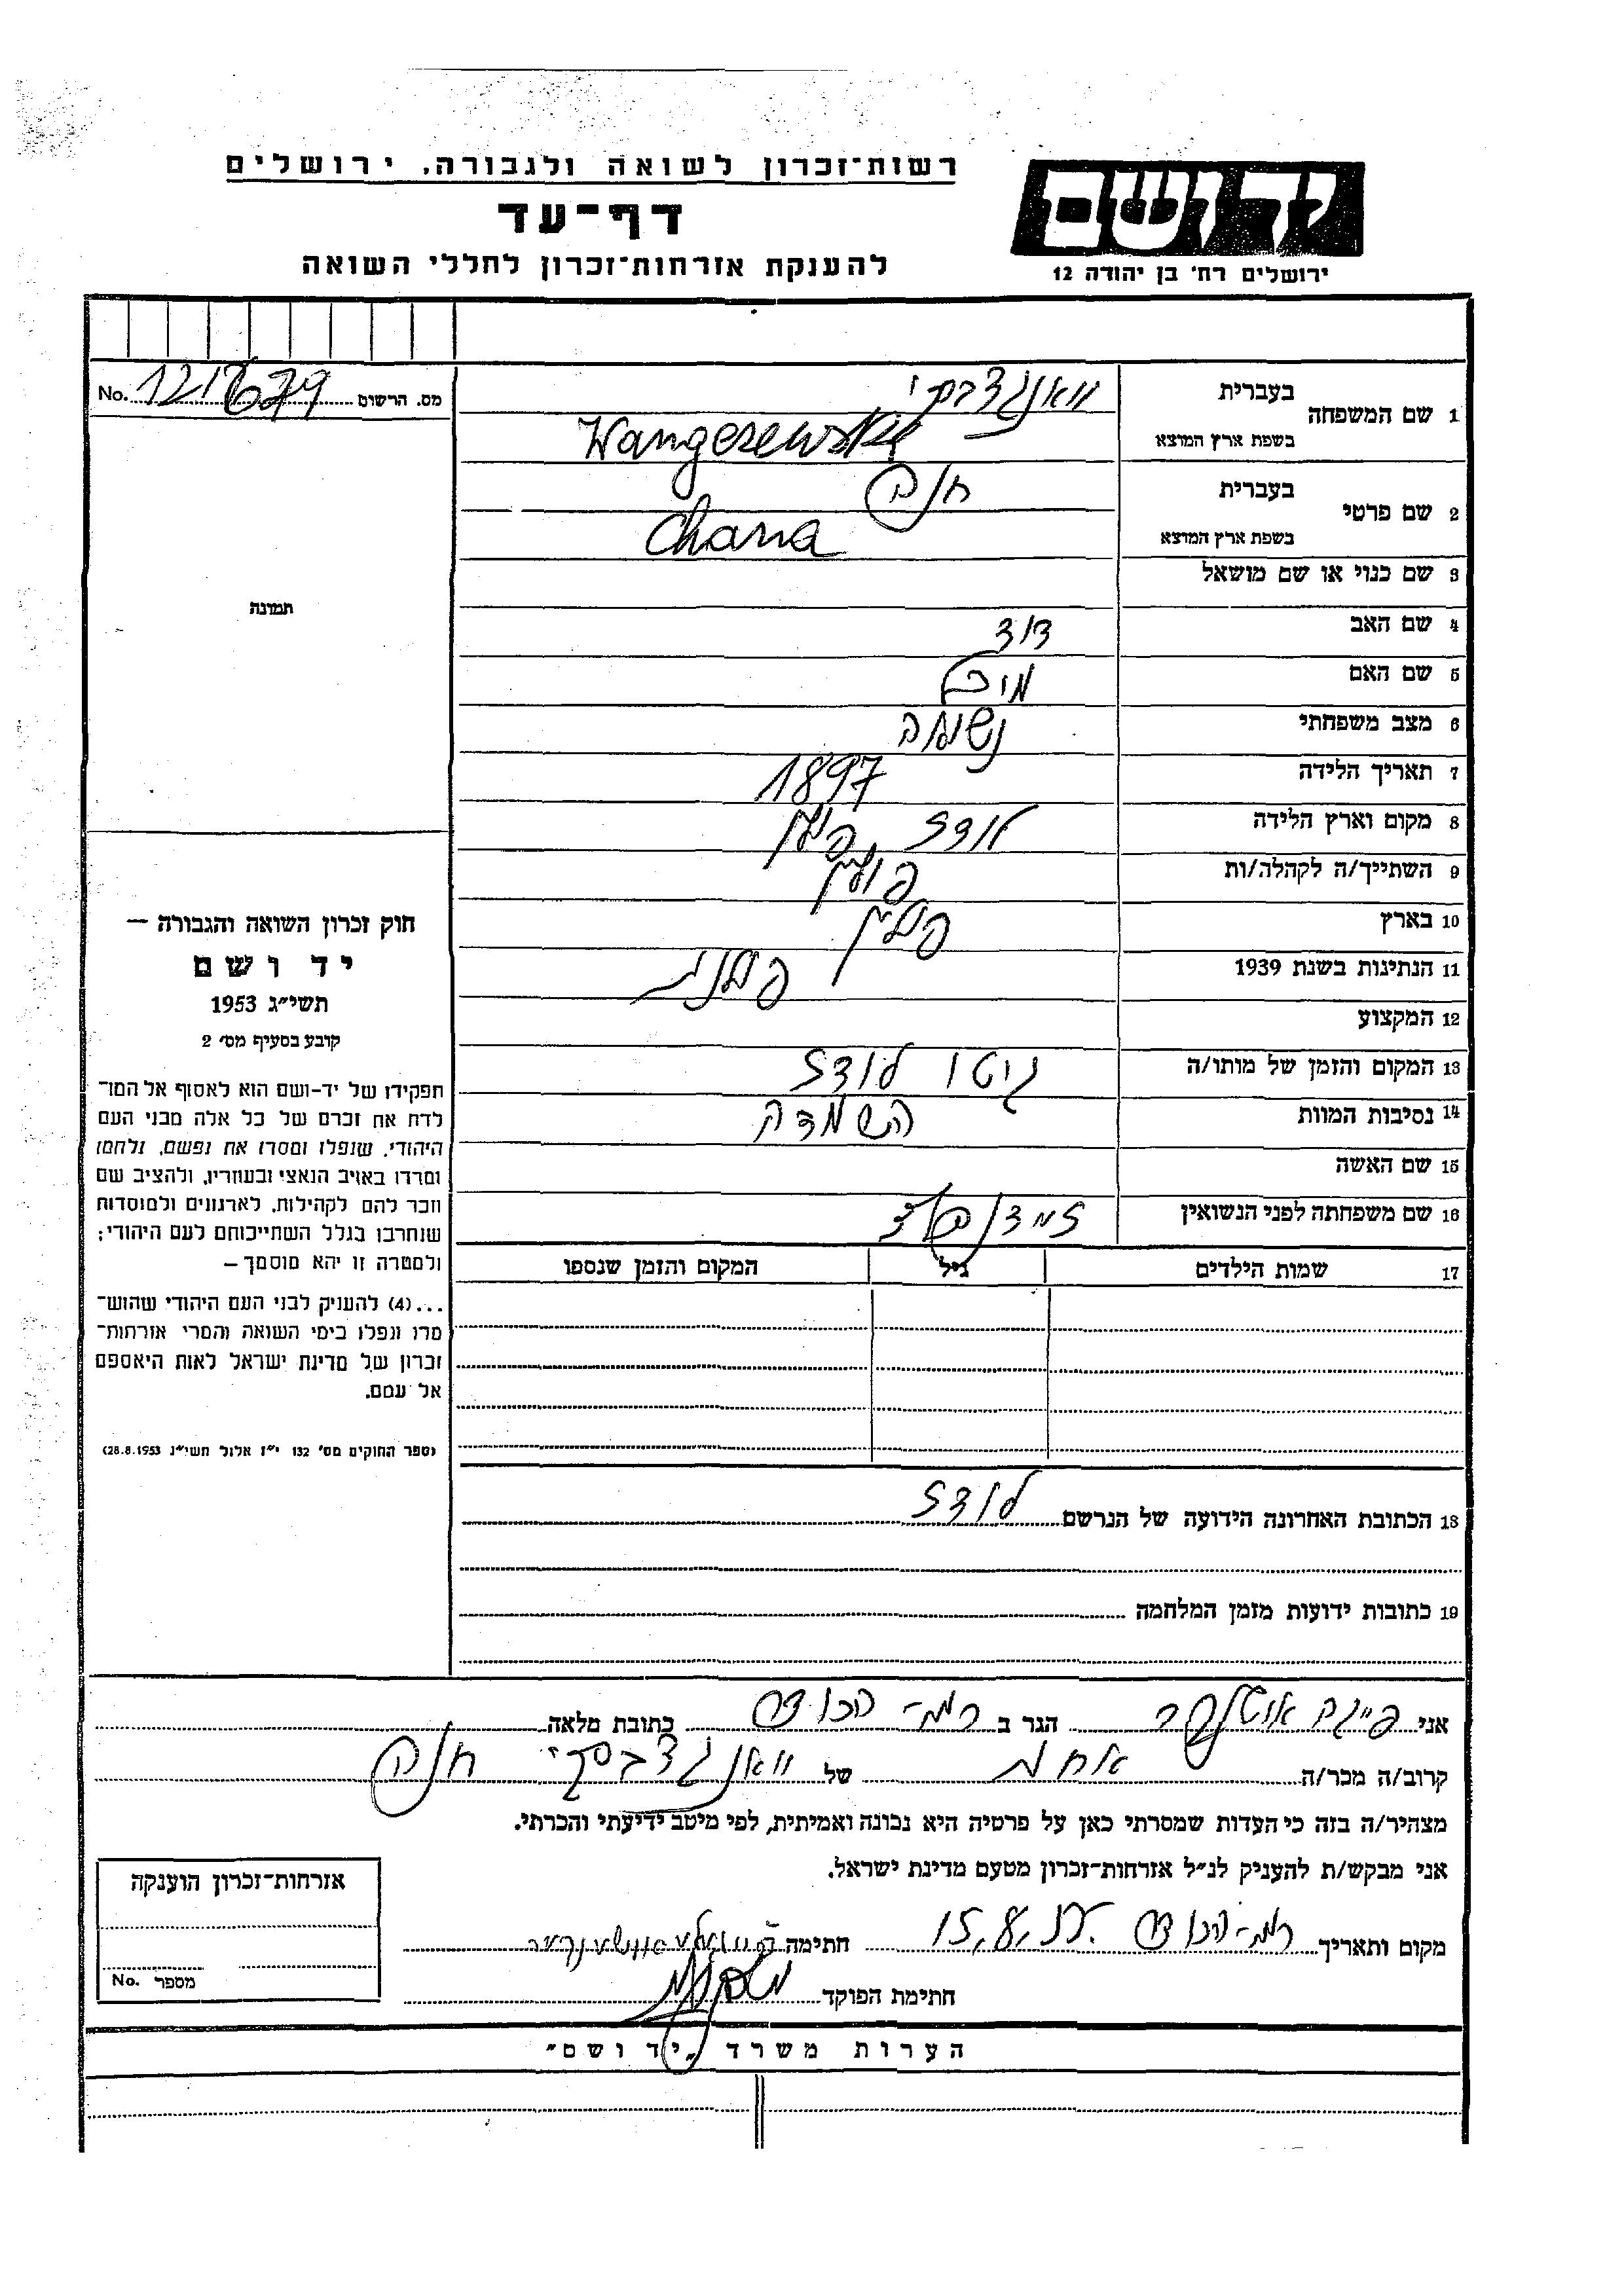 רשות־זכרון לשואה ולגבורה, ירושלים
דף־עד
להענקת אזרחות־זכרון לחללי השואה
יד ושם
ירושלים רח׳ בן יהודה 12
מס. הרשום No.
1 שם המשפחה
בעברית
בשפת ארץ המוצא Wangczewski
2 שם פרטי
בעברית חנה
בשפת ארץ המוצא Chana
3 שם כנוי או שם מושאל
4 שם האב דוד
5 שם האם
6 מצב משפחתי נשואה
7 תאריך הלידה 1897
8 מקום וארץ הלידה לודז פולין
9 השתייך/ה לקהלה/ות פולין
10 בארץ פולין
11 הנתינות בשנת 1939 פולנית
12 המקצוע
13 המקום והזמן של מותו/ה גיטו לודז
14 נסיבות המוות השמדה
15 שם האשה
16 שם משפחתה לפני הנשואין
17 שמות הילדים גיל המקום והזמן שנספו
18 הכתובת האחרונה הידועה של הנרשם לודז
19 כתובות ידועות מזמן המלחמה
תמונה
חוק זכרון השואה והגבורה –
יד ושם
תשי״ג 1953
קובע בסעיף מס׳ 2
תפקידו של יד-ושם הוא לאסוף אל המו־
לדת את זכרם של כל אלה מבני העם
היהודי, שנפלו ומסרו את נפשם, נלחמו
ומרדו באויב הנאצי ובעוזריו, ולהציב שם
וזכר להם לקהילות, לארגונים ולמוסדות
שנחרבו בגלל השתייכותם לעם היהודי;
ולמטרה זו יהא מוסמך –
...(4) להעניק לבני העם היהודי שהוש־
מדו ונפלו בימי השואה והמרי אזרחות־
זכרון של מדינת ישראל לאות היאספם
אל עמם.
(ספר החוקים מס׳ 132 י״ז אלול תשי״ג 28.8.1953)
אני הגר ב כתובת מלאה
קרוב/ה מכר/ה אחות של חנה
מצהיר/ה בזה כי העדות שמסרתי כאן על פרטיה היא נכונה ואמיתית, לפי מיטב ידיעתי והכרתי.
אני מבקש/ת להעניק לנ״ל אזרחות־זכרון מטעם מדינת ישראל.
מקום ותאריך חתימה
חתימת הפוקד
אזרחות־זכרון הוענקה
מספר No.
הערות משרד „יד ושם״